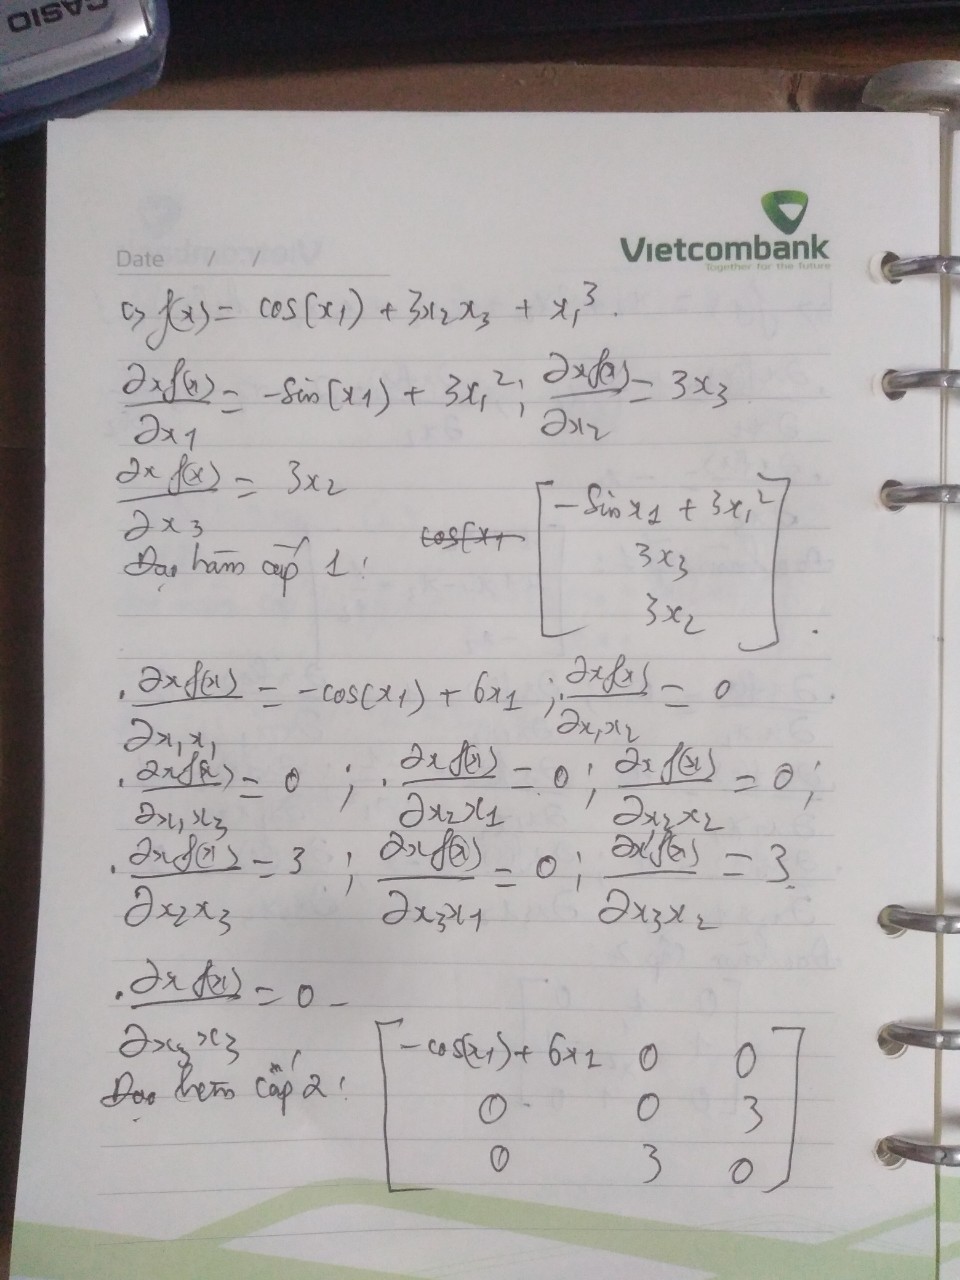 CASIO
Vietcombank
Together for the future
Date / /
c) f(x) = cos(x₁) + 3x₂x₃ + x₁³.
∂xf(x)/∂x1 = -sin(x1) + 3x₁²; ∂xf(x)/∂x₂ = 3x₃
∂x f(x)/∂x3 = 3x₂
Đạo hàm cấp 1: cos(x1 [-Sin x1 + 3x₁²
3x₃
3x₂].
. ∂xf(x)/∂x₁x₁ = -cos(x1) + 6x1 ; . ∂xf(x)/∂x₁x₂ = 0
. ∂xf(x)/∂x₁x₃ = 0 ; . ∂x f(x)/∂x₂x1 = 0 ; ∂x f(x)/∂x₂x₂ = 0 ;
. ∂xf(x)/∂x₂x₃ = 3 ; ∂xf(x)/∂x₃x1 = 0 ; ∂xf(x)/∂x₃x₂ = 3
. ∂x f(x)/∂x₃x₃ = 0
Đạo hàm cấp 2: [-cos(x1) + 6x1 0 0
0 0 3
0 3 0]